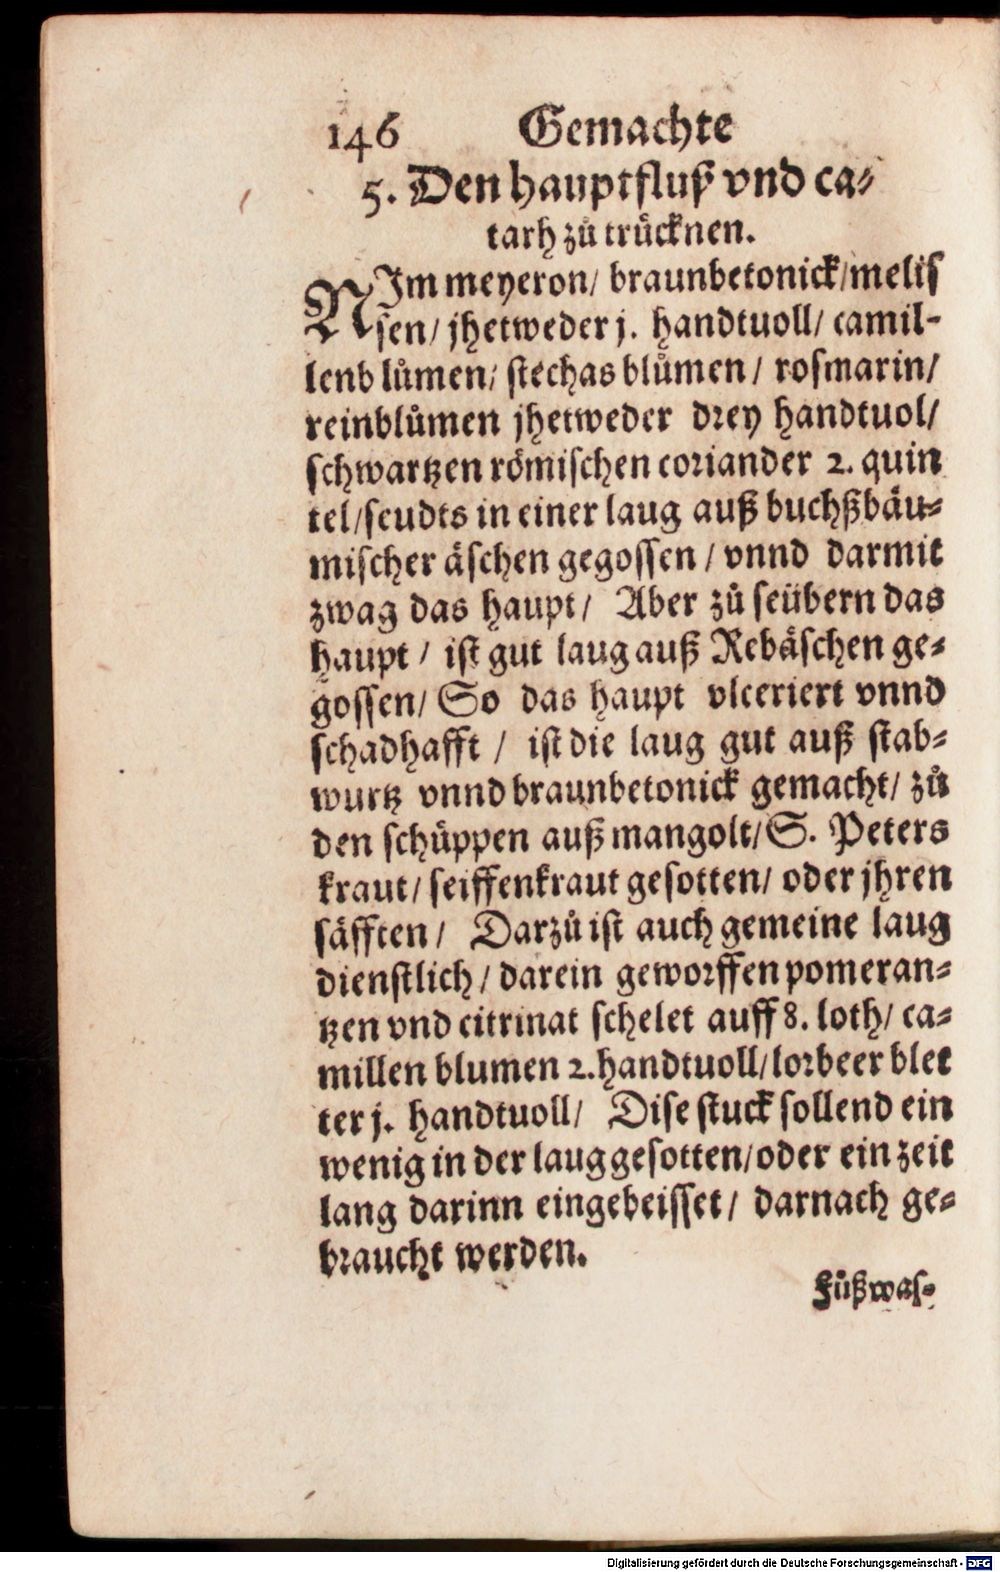 146 Gemachte
5. Den hauptfluß vnd ca⸗
tarh zů trücknen.
NIm meyeron/ braunbetonick/melis
sen/ jhetweder j. handtuoll/ camil-
lenblůmen/ stechasblůmen/ rosmarin/
reinblůmen jhetweder drey handtuol/
schwartzen römischen coriander 2. quin
tel/seudts in einer laug auß buchßbäu⸗
mischer äschen gegossen/ vnnd darmit
zwag das haupt/ Aber zů seübern das
haupt/ ist gut laug auß Rebäschen ge⸗
gossen/ So das haupt vlceriert vnnd
schadhafft/ ist die laug gut auß stab⸗
wurtz vnnd braunbetonick gemacht/ zů
den schüppen auß mangolt/ S. Peters
kraut/ seiffenkraut gesotten/ oder jhren
säfften/ Darzů ist auch gemeine laug
dienstlich/ darein geworffen pomeran⸗
tzen vnd citrinat schelet auff 8. loth/ ca⸗
millen blumen 2. handtuoll/ lorbeer blet
ter j. handtuoll/ Dise stuck sollend ein
wenig in der laug gesotten/ oder ein zeit
lang darinn eingebeisset/ darnach ge⸗
braucht werden.
Füßwas⸗
Digitalisierung gefördert durch die Deutsche Forschungsgemeinschaft - DFG